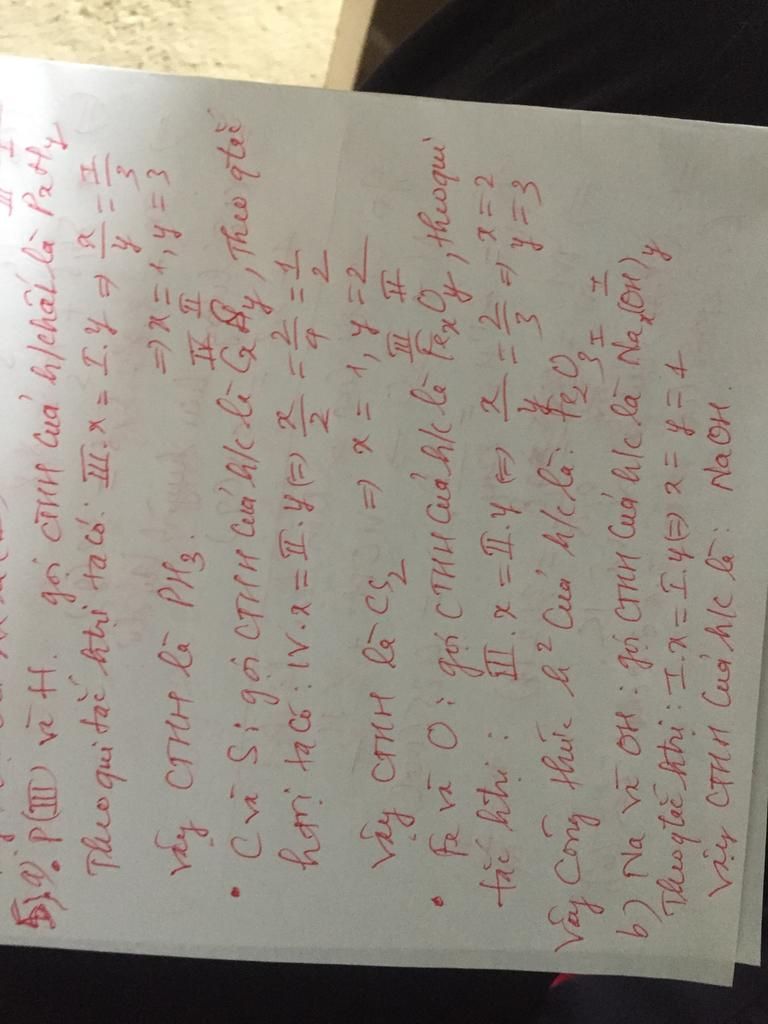 III I
5) a). P(III) và H. gọi CTHH của h/chất là PxHy
Theo qui tắc htrị ta có: III.x = I.y => x/y = I/3
=> x = 1, y = 3
Vậy CTHH là PH3.
IV II
• C và S: gọi CTHH của h/c là CxSy, theo qtắc
htrị ta có: IV.x = II.y (=) x/2 = 2/4 = 1/2
Vậy CTHH là CS2 => x = 1, y = 2
III II
• Fe và O: gọi CTHH của h/c là FexOy, theo qui
tắc htrị: III.x = II.y (=) x/y = 2/3 => x = 2
y = 3
Vậy Công thức h² của h/c là: Fe2O3
I I
b) Na và OH: gọi CTHH của h/c là Nax(OH)y
Theo qtắc htrị: I.x = I.y (=) x = y = 1
Vậy CTHH của h/c là: NaOH.